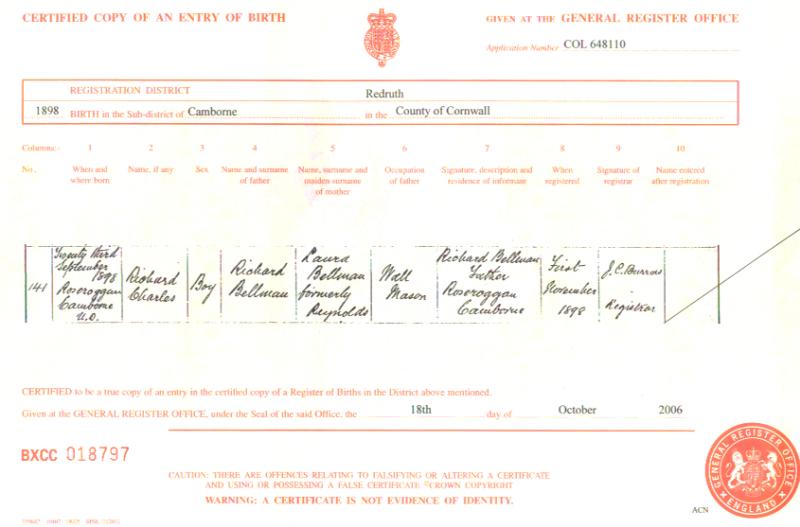 CERTIFIED COPY OF AN ENTRY OF BIRTH
GIVEN AT THE GENERAL REGISTER OFFICE
Application Number COL 648110
REGISTRATION DISTRICT Redruth
1898 BIRTH in the Sub-district of Camborne in the County of Cornwall
Columns:- 1 2 3 4 5 6 7 8 9 10
No. When and where born Name, if any Sex Name and surname of father Name, surname and maiden surname of mother Occupation of father Signature, description and residence of informant When registered Signature of registrar Name entered after registration
141 Twenty third September 1898 Roseroggan Camborne U.D. Richard Charles Boy Richard Bellman Laura Bellman formerly Reynolds Wall Mason Richard Bellman Father Roseroggan Camborne First November 1898 J.C. Burrows Registrar
CERTIFIED to be a true copy of an entry in the certified copy of a Register of Births in the District above mentioned.
Given at the GENERAL REGISTER OFFICE, under the Seal of the said Office, the 18th day of October 2006
BXCC 018797
CAUTION: THERE ARE OFFENCES RELATING TO FALSIFYING OR ALTERING A CERTIFICATE
AND USING OR POSSESSING A FALSE CERTIFICATE ©CROWN COPYRIGHT
WARNING: A CERTIFICATE IS NOT EVIDENCE OF IDENTITY.
GENERAL REGISTER OFFICE
ENGLAND
ACN